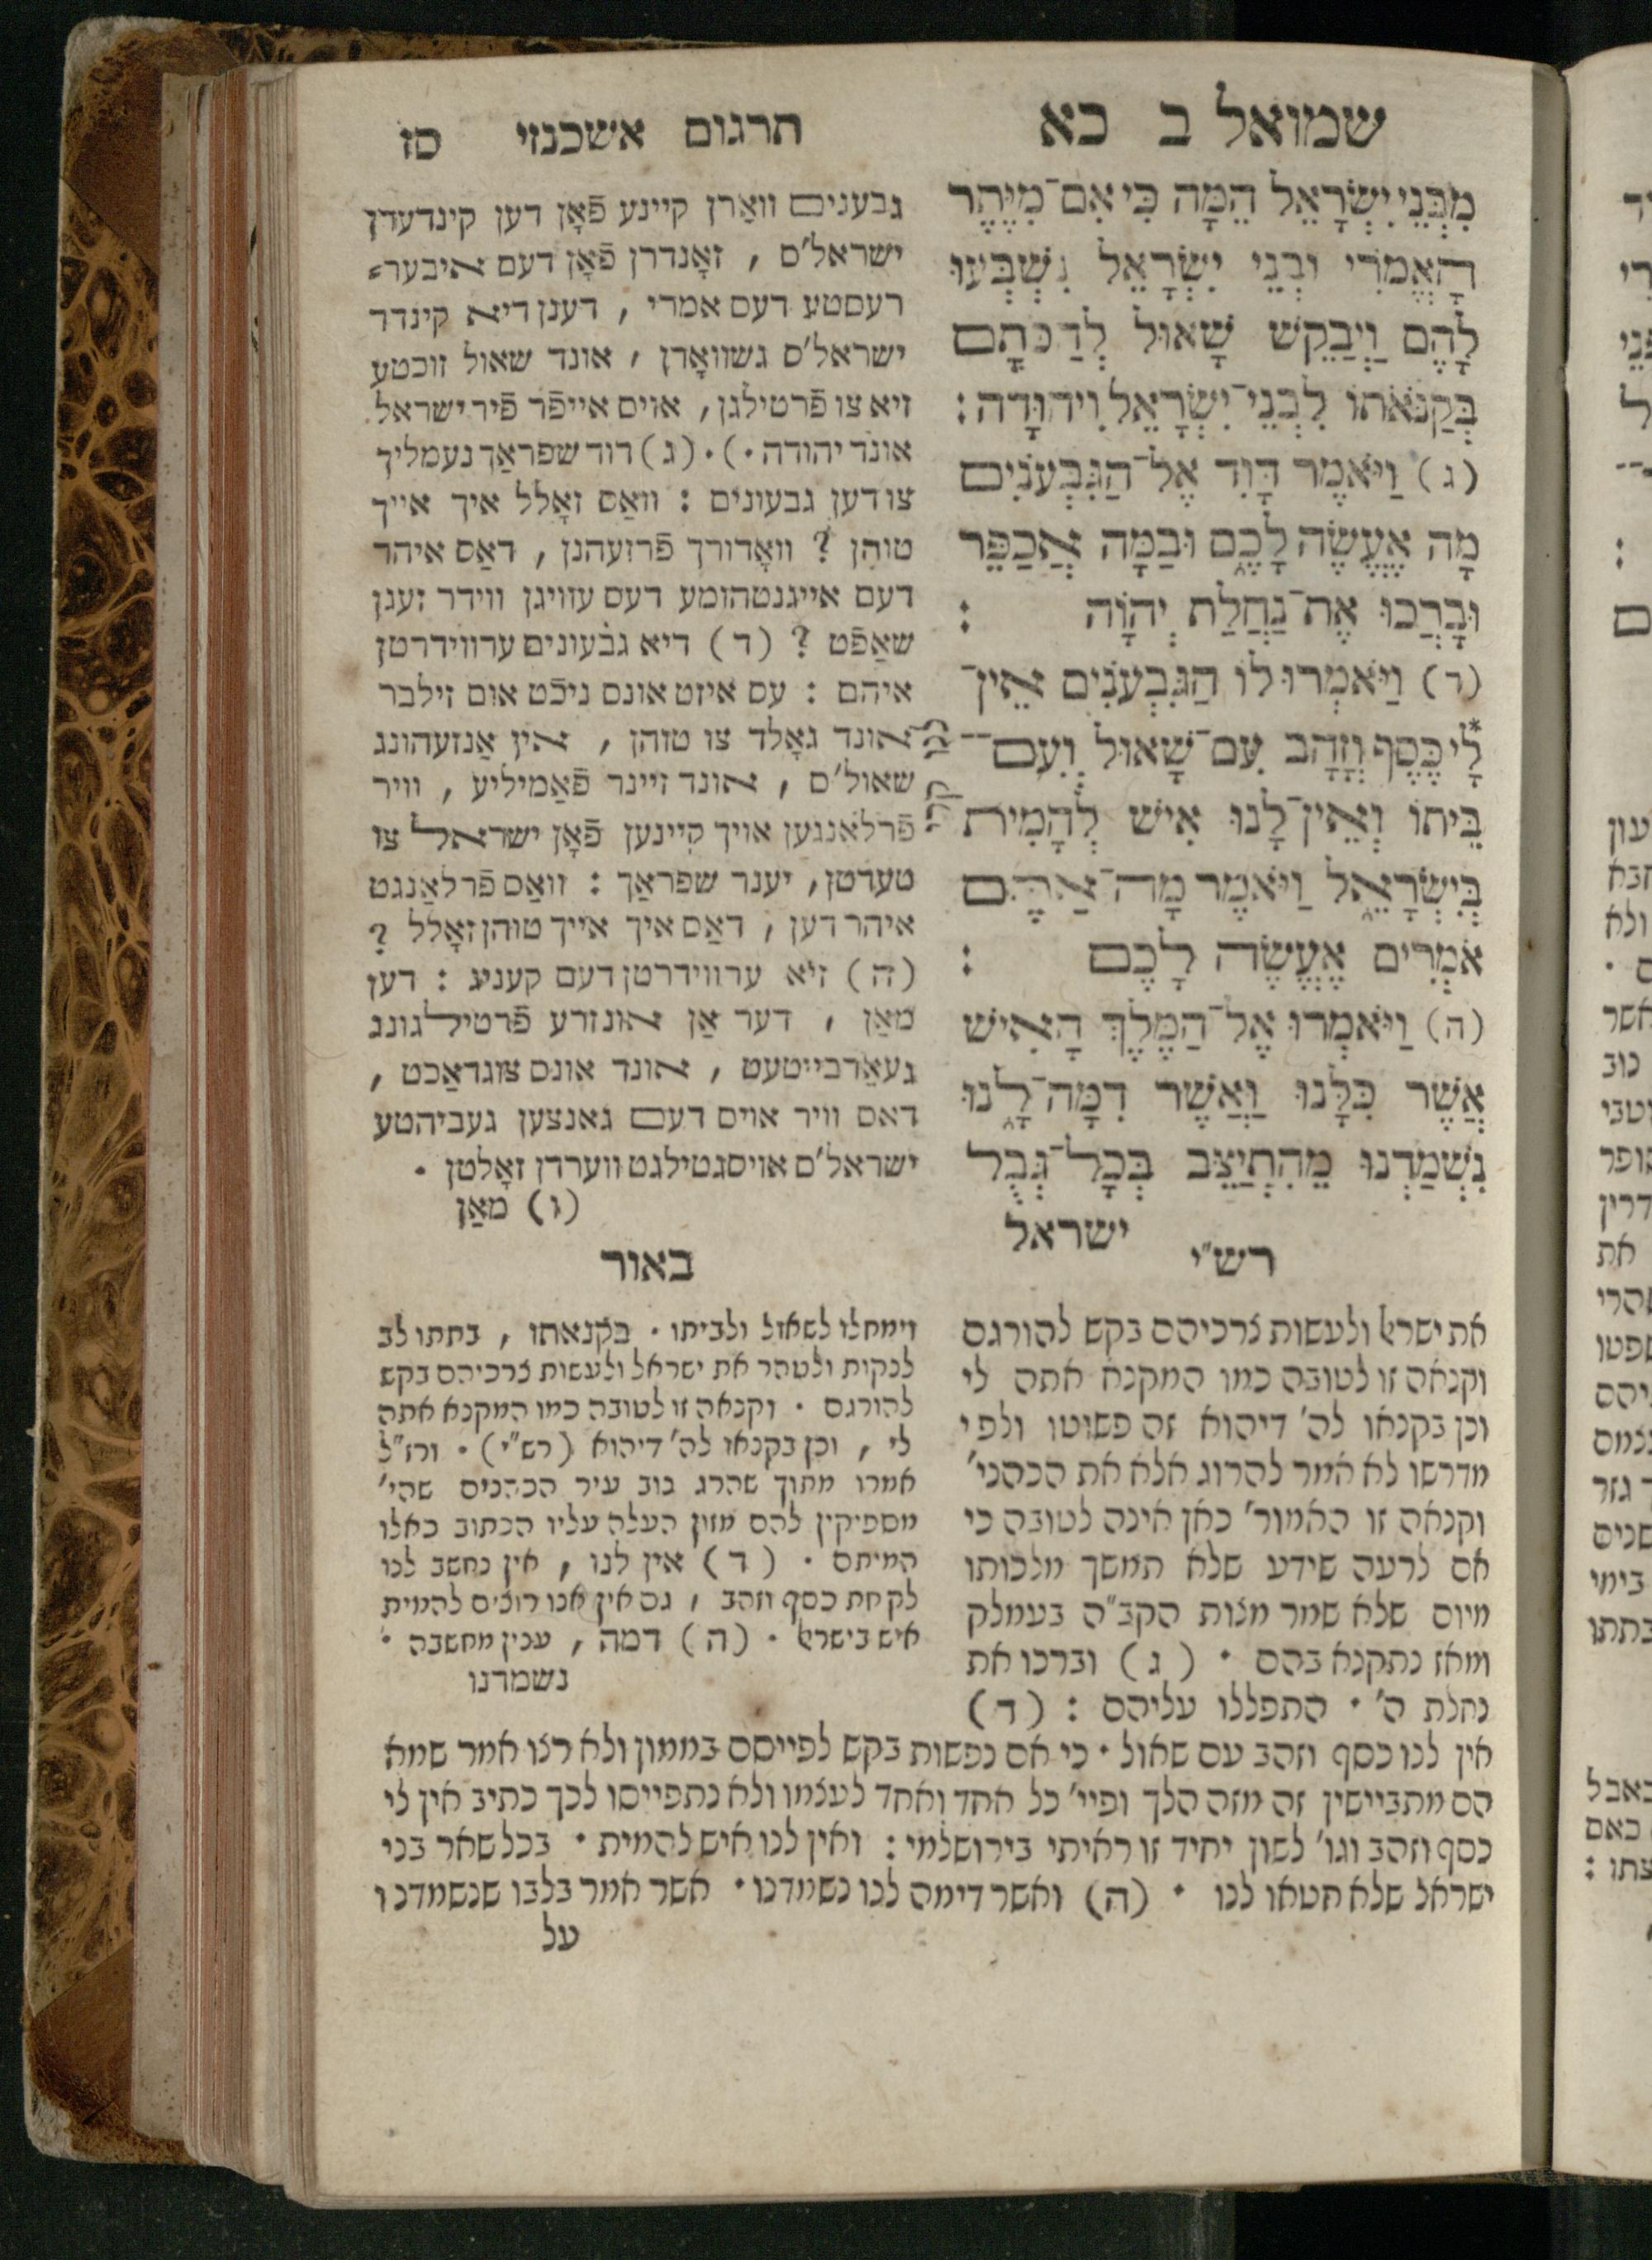 שמואל ב כא
מִבְּנֵי יִשְׂרָאֵל הֵמָּה כִּי אִם־מִיֶּתֶר
הָאֱמֹרִי וּבְנֵי יִשְׂרָאֵל נִשְׁבְּעוּ
לָהֶם וַיְבַקֵּשׁ שָׁאוּל לְהַכֹּתָם
בְּקַנֹּאתוֹ לִבְנֵי־יִשְׂרָאֵל וִיהוּדָה :
(ג) וַיֹּאמֶר דָּוִד אֶל־הַגִּבְעֹנִים
מָה אֶעֱשֶׂה לָכֶם וּבַמָּה אֲכַפֵּר
וּבָרֲכוּ אֶת־נַחֲלַת יְהוָֹה :
(ד) וַיֹּאמְרוּ לוֹ הַגִּבְעֹנִים אֵין־
*לָי כֶּסֶף וְזָהָב עִם־שָׁאוּל וְעִם־
בֵּיתוֹ וְאֵין־לָנוּ אִישׁ לְהָמִית
בְּיִשְׂרָאֵל וַיֹּאמֶר מָה־אַתֶּם
אֹמְרִים אֶעֱשֶׂה לָכֶם :
(ה) וַיֹּאמְרוּ אֶל־הַמֶּלֶךְ הָאִישׁ
אֲשֶׁר כִּלָּנוּ וַאֲשֶׁר דִּמָּה־לָנוּ
נִשְׁמַדְנוּ מֵהִתְיַצֵּב בְּכָל־גְּבֻל
ישראל
תרגום אשכנזי סז
גבענים וואַרן קיינע פֿאָן דען קינדערן
ישראל'ס , זאָנדרן פֿאָן דעם איבער-
רעסטע דעס אמרי , דענן דיא קינדר
ישראל'ס גשוואָרן , אונד שאול זוכטע
זיא צו פֿרטילגן, אויס אייפֿר פֿיר ישראל
אונד יהודה .) . (ג) דוד שפראַך נעמליך
צו דען גבעונים : וואַס זאָלל איך אייך
טוהן ? וואָדורך פֿרזעהנן , דאַס איהר
דעם אייגנטהומע דעס עוויגן ווידר זענן
שאַפֿט ? (ד) דיא גבעונים ערווידרטן
איהם : עס איזט אונס ניכֿט אום זילבר
אונד גאָלד צו טוהן , אין אַנזעהונג
שאול'ס , אונד זיינר פֿאַמיליע , וויר
פֿרלאנגען אויך קיינען פֿאָן ישראל צו
טערטן, יענר שפראַך : וואַס פֿרלאַנגט
איהר דען , דאַס איך אייך טוהן זאָלל ?
(ה) זיא ערווידרטן דעם קעניג : דען
מאַן , דער אַן אונזרע פֿרטילגונג
געאַרבייטעט , אונד אונס צוגדאַכט ,
דאס וויר אויס דעם גאנצען געביהטע
ישראל'ס אויסגטילגט ווערדן זאָלטן .
(ו) מאַן
רש"י
את ישראל ולעשות צרכיהם בקש להורגם
וקנאה זו לטובה כמו המקנא אתה לי
וכן בקנאו לה' דיהוא זה פשוטו ולפי
מדרשו לא אמר להרוג אלא את הכהני'
וקנאה זו האמור' כאן אינה לטובה כי
אם לרעה שידע שלא תמשך מלכותו
מיום שלא שמר מצות הקב"ה בעמלק
ומאז נתקנא בהם . (ג) וברכו את
נחלת ה' . התפללו עליהם : (ד)
אין לנו כסף וזהב עם שאול . כי אם נפשות בקש לפייסם בממון ולא רצו אמר שמא
הם מתביישין זה מזה הלך ופיי' כל אחד ואחד לעצמו ולא נתפייסו לכך כתיב אין לי
כסף וזהב וגו' לשון יחיד זו ראיתי בירושלמי : ואין לנו איש להמית . בכל שאר בני
ישראל שלא חטאו לנו . (ה) ואשר דימה לנו נשמדנו . אשר אמר בלבו שנשמדנו
על
באור
וימחלו לשאול ולביתו . בקנאתו , בתתו לב
לנקות ולטהר את ישראל ולעשות צרכיהם בקש
להורגם . וקנאה זו לטובה כמו המקנא אתה
לי , וכן בקנאו לה' דיהוא (רש"י) . ורז"ל
אמרו מתוך שהרג נוב עיר הכהנים שהי'
מספיקין להם מזון העלה עליו הכתוב כאלו
המיתם . (ד) אין לנו , אין נחשב לנו
לקחת כסף וזהב , גם אין אנו רוצים להמית
איש בישראל . (ה) דמה , ענין מחשבה .
נשמדנו